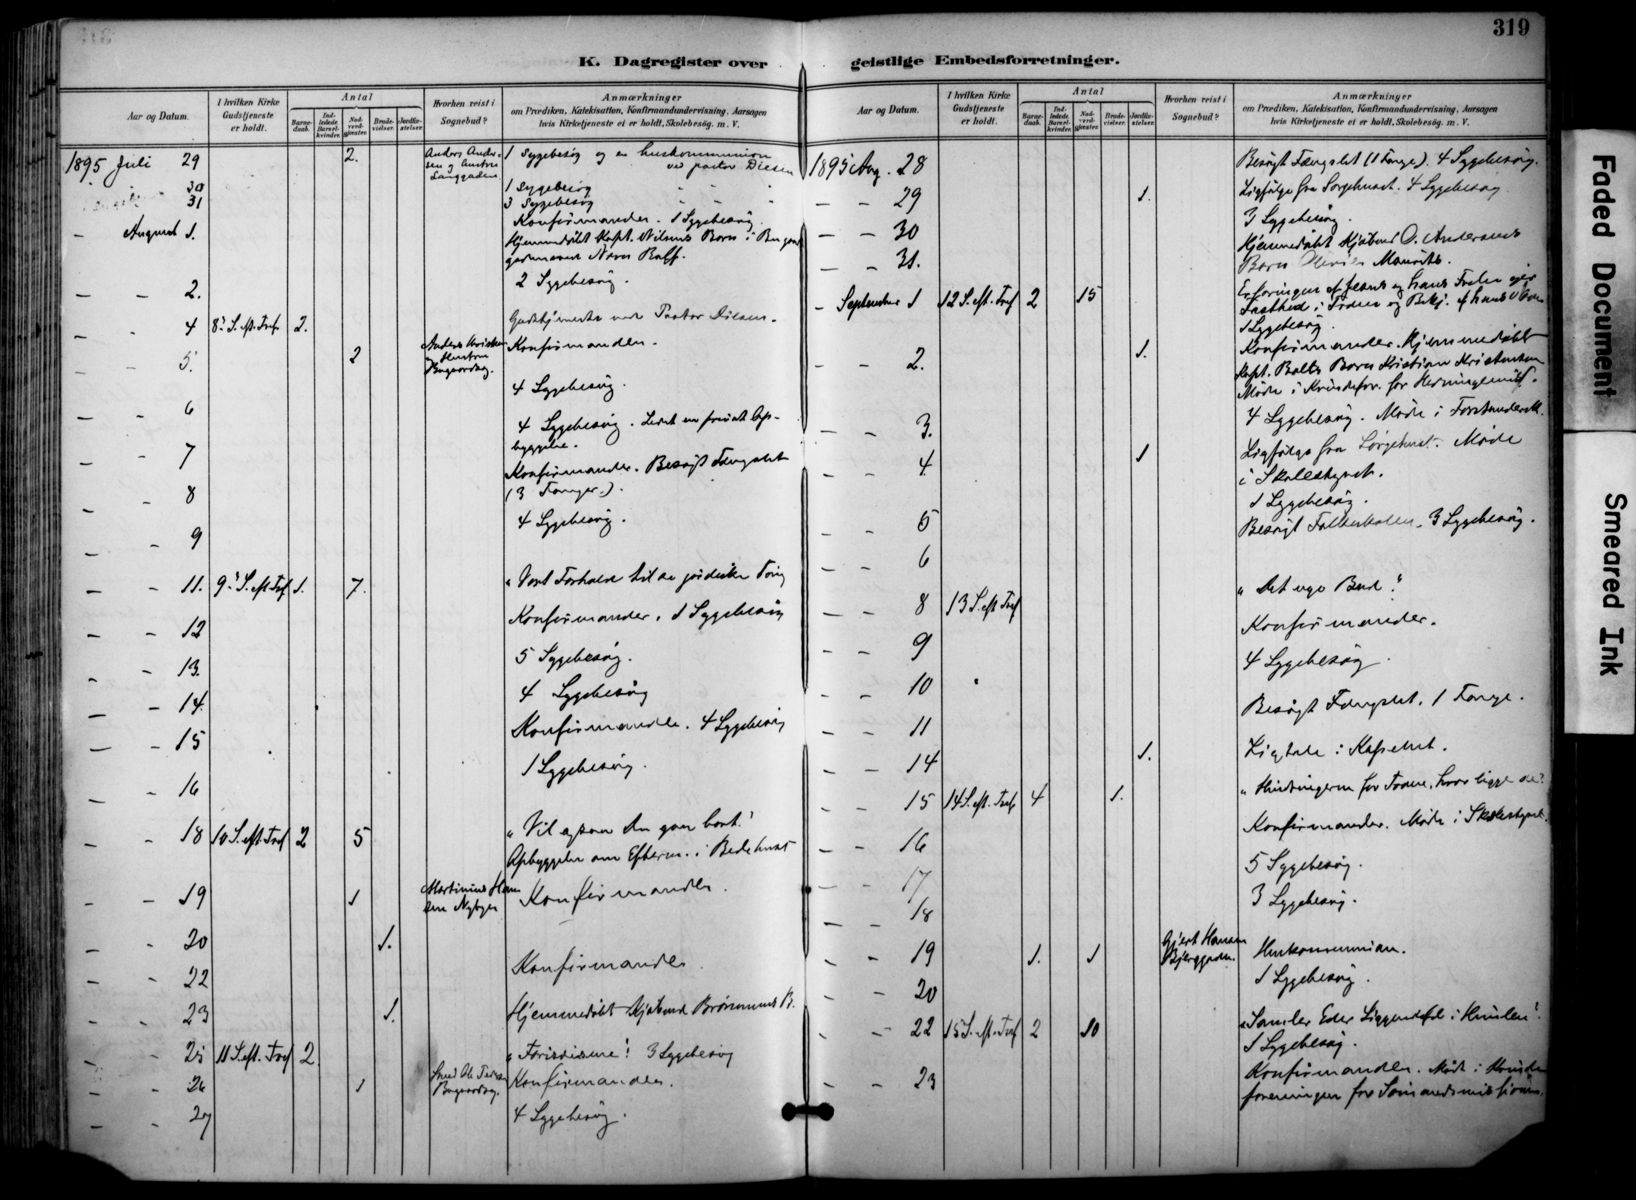 319
K. Dagregister over geistlige Embedsforretninger.
Aar og Datum.
I hvilken Kirke Gudstjeneste er holdt.
Antal
Barnedaab.
Indledede Barselkvinder.
Nadverdgjester.
Brudevielser.
Jordfæstelser.
Hvorhen reist i Sognebud?
Anmærkninger
om Prædiken, Katekisation, Konfirmandundervisning, Aarsagen
hvis Kirketjeneste ei er holdt, Skolebesøg. m. V.
1895 Juli 29 2. Anders Andersen og Langgaden 1 Sygebesøg og en huskommunion
ved pastor Diesen
30 1 Sygebesøg " " "
31 3 Sygebesøg " " "
Konfirmander. 1 Sygebesøg.
- August 1. Hjemmedøbt Kapt. Nilsens Barn i
2 Sygebesøg.
- - 2.
- - 4 8de S. eft. Tref. 2. Gudstjeneste ved Pastor Diesen.
- - 5. 2 Anders Konfirmander.
4 Sygebesøg.
- - 6 4 Sygebesøg. Ledet en privat Op-
byggelse.
- - 7 Konfirmander. Besøgt Fængslet
(3 Fanger.).
- - 8 4 Sygebesøg.
- - 9
- - 11. 9de S. eft. Tref. 1. 7. "Vort Forhold til de jordiske Ting
- - 12 Konfirmander. 1 Sygebesøg
5 Sygebesøg.
- - 13. 4 Sygebesøg
- - 14. Konfirmander. 4 Sygebesøg
- - 15 1 Sygebesøg.
- - 16
- - 18 10 S. eft. Tref 2 5 "Vil ogsaa du gaa bort."
Opbyggelse om Efterm. i Bedehuset
- - 19 1 Martinius Hansen Nybyen Konfirmander.
- - 20 1.
- - 22 Konfirmander.
- - 23 1. Hjemmedøbt Kjøbmd B.
- - 25 11 S. eft. Tref 2. " " 3 Sygebesøg
- - 26 1 Smed Ole Konfirmander.
- - 27 4 Sygebesøg.
Aar og Datum.
I hvilken Kirke Gudstjeneste er holdt.
Antal
Barnedaab.
Indledede Barselkvinder.
Nadverdgjester.
Brudevielser.
Jordfæstelser.
Hvorhen reist i Sognebud?
Anmærkninger
om Prædiken, Katekisation, Konfirmandundervisning, Aarsagen
hvis Kirketjeneste ei er holdt, Skolebesøg. m. V.
1895 Aug. 28 Besøgt Fængslet (1 Fange). 4 Sygebesøg.
- - 29 1. Ligfølge fra Sørgehuset. 4 Sygebesøg
3 Sygebesøg.
- - 30 Hjemmedøbt Kjøbmd O. Andersens
- - 31. Barn Mauritz.
- September 1 12 S. eft. Tref 2 15 Erfaringen af Jesus og hans Frelse giver
Fasthed i Troen og Bekj. af hans Navn
1 Sygebesøg.
- - 2. 1. Konfirmander. Hjemmedøbt
Kapt. Balts Barn Kristian Kristensen
Møde i Kvindefor. for Hedningemis.
- - 3. 4 Sygebesøg. Møde i
- - 4 1 Ligfølge fra Sørgehuset. Møde
i Skolestyret.
1 Sygebesøg.
- - 5 Besøgt Folkeskolen. 3 Sygebesøg.
- - 6
- - 8 13 S. eft. Tref "Det nye Bud."
- - 9 Konfirmander.
4 Sygebesøg
- - 10
- - 11 Besøgt Fængslet. 1 Fange.
- - 14 1. Ligtale i Kapellet.
- - 15 14 S. eft. Tref 4 1. "Hindringerne for Troen, hvor ligge de?
- - 16 Konfirmander. Møde i Skolestyret.
- - 17 5 Sygebesøg.
- - 18 3 Sygebesøg.
- - 19 1. 1 Gjert Hansen Huskommunion.
- - 20 1 Sygebesøg.
- - 22 15 S. eft. Tref 2 10 "Samler Eder Liggendefæ i Himlen"
1 Sygebesøg.
- - 23 Konfirmander. Møde i Kvinde
foreningen for Sømandsmissionen.
Faded Document
Smeared Ink